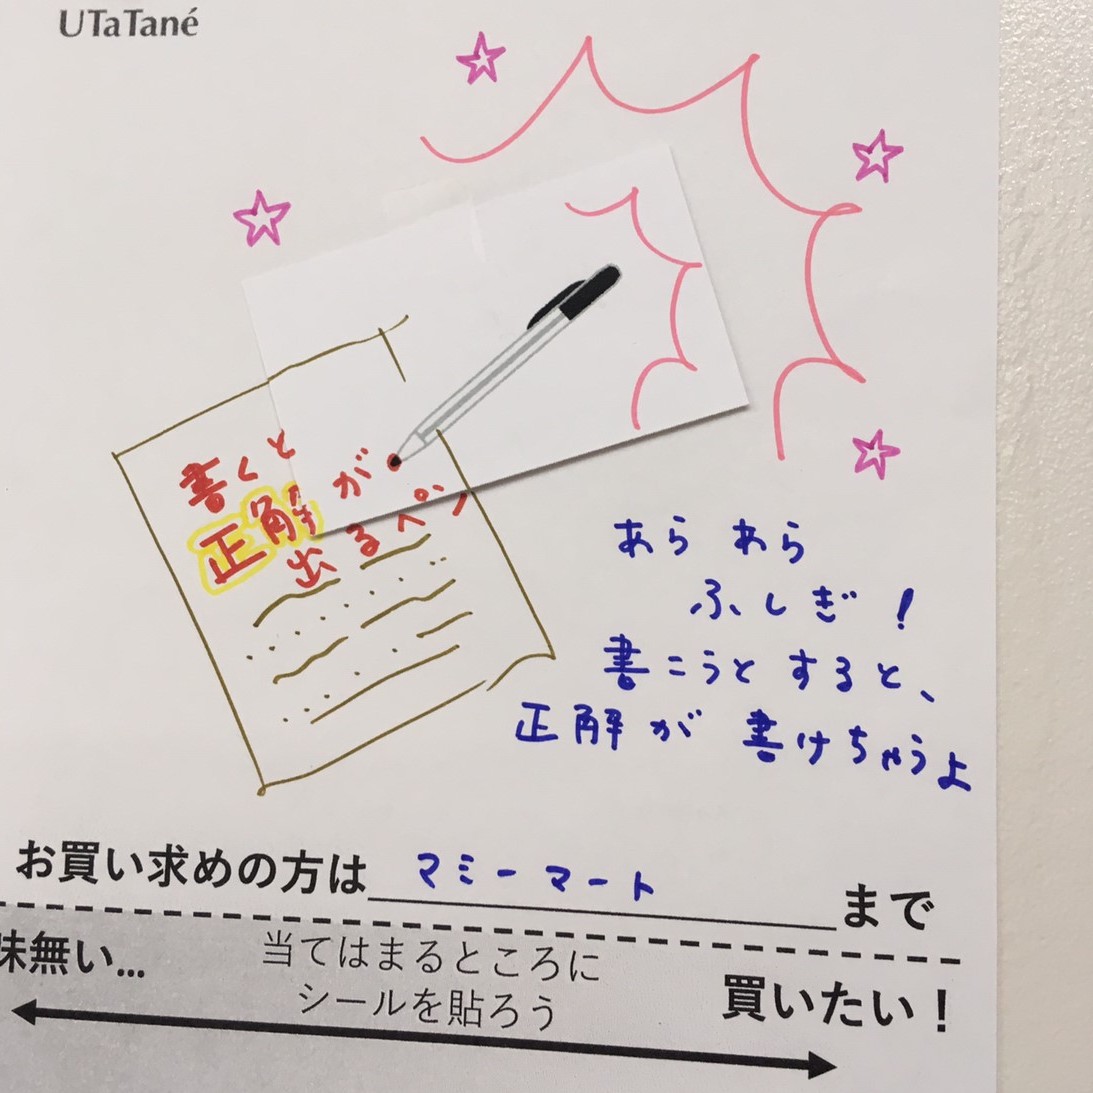 UTaTané
書くと
正解が
出るペン
あら あら
ふしぎ!
書こうとすると、
正解が 書けちゃうよ
お買い求めの方は マミーマート まで
味無い...
当てはまるところに
シールを貼ろう
買いたい!